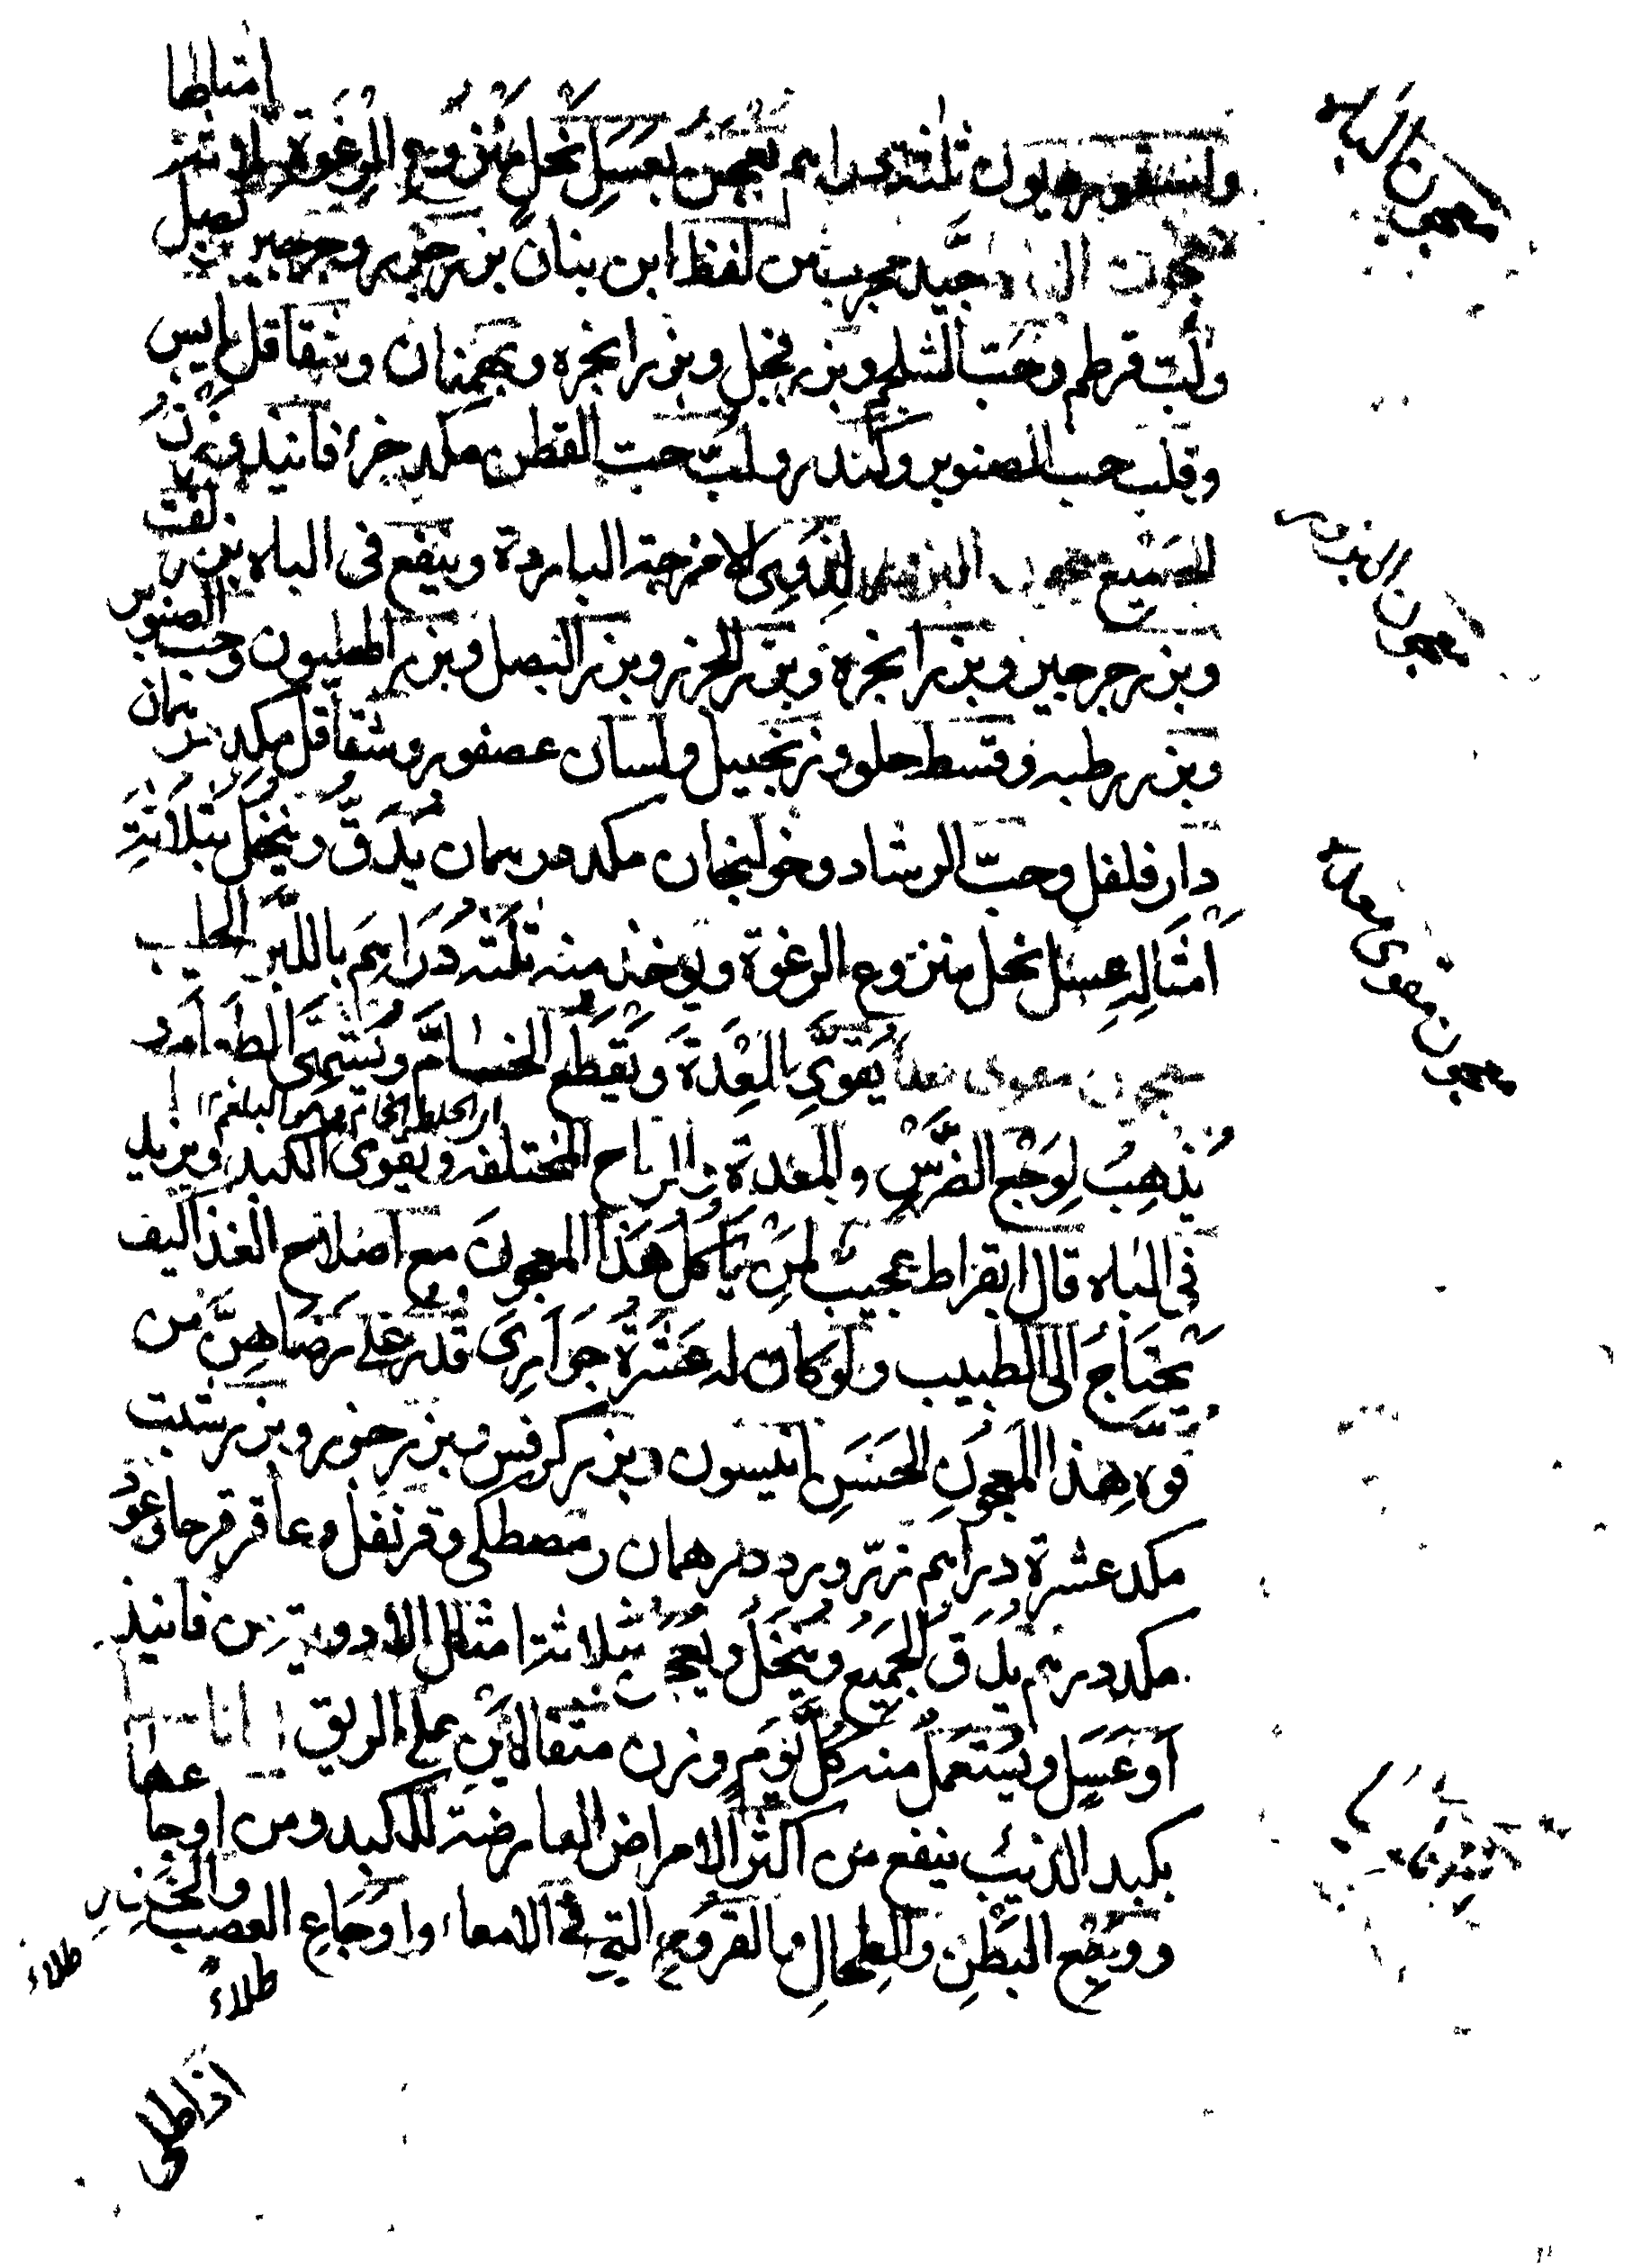 معجون الباه
وافيون ثلثة دراهم يعجن بعسل نحل منزوع الرغوة
معجون الباه جيد مجرب من لفظ ابن بنان بزر جزر وجرجير وبصل
ولب قرطم وحب الشلجم وبزر فجل وبزر انجره وبهمنان وشقاقل يابس
وقلب حب الصنوبر وكندر ولب حب القطن مكد جزء فانيد وزن
الجميع معجون البزور لذوى الامزجة الباردة وينفع فى الباه بزر لفت
معجون البزور
وبزر جرجير وبزر انجرة وبزر الجزر وبزر البصل وبزر الهليون وحب الصنوبر
وبزر رطبه وقسط حلو وزنجبيل ولسان عصفور وشقاقل مكد درهمان
دار فلفل وحب الرشاد وخولنجان مكد درهمان يدق وينخل بثلاثة
امثاله عسل نحل منزوع الرغوة ويوخذ منه ثلثه دراهم باللبن الحليب
معجون مقوى معدة
معجون مقوى معدا يقوى المعدة ويقطع الخام ويشهى الطعام و
اى الخلط الخام وهو البلغم
يذهب لوجع الضرس والمعدة والرياح المختلفه ويقوى الكبد ويزيد
فى الباه قال ابقراط عجيب لمن ياكل هذا المعجون مع اصلاح الغذا كيف
يحتاج الى الطبيب ولو كان له عشرة جوارى قدر على رضاهن من
قوه هذا المعجون الحسن انيسون وبزر كرفس وبزر جزر وبزر شبت
مكد عشرة دراهم زر ورد درهمان ومصطكى وقرنفل وعاقرقرحا وعود
مكد درهم يدق الجميع وينخل ويعجن بثلاثة امثال الادوية من فانيذ
او عسل ويستعمل منه كل يوم وزن مثقالين على الريق
بكبد الذيب ينفع من اكثر الامراض العارضة للكبد ومن اوجاعها
ووجع البطن والطحال والقروح التى فى الامعاء واوجاع العصب والخنازير
طلاءً
طلاء
اذا طلى